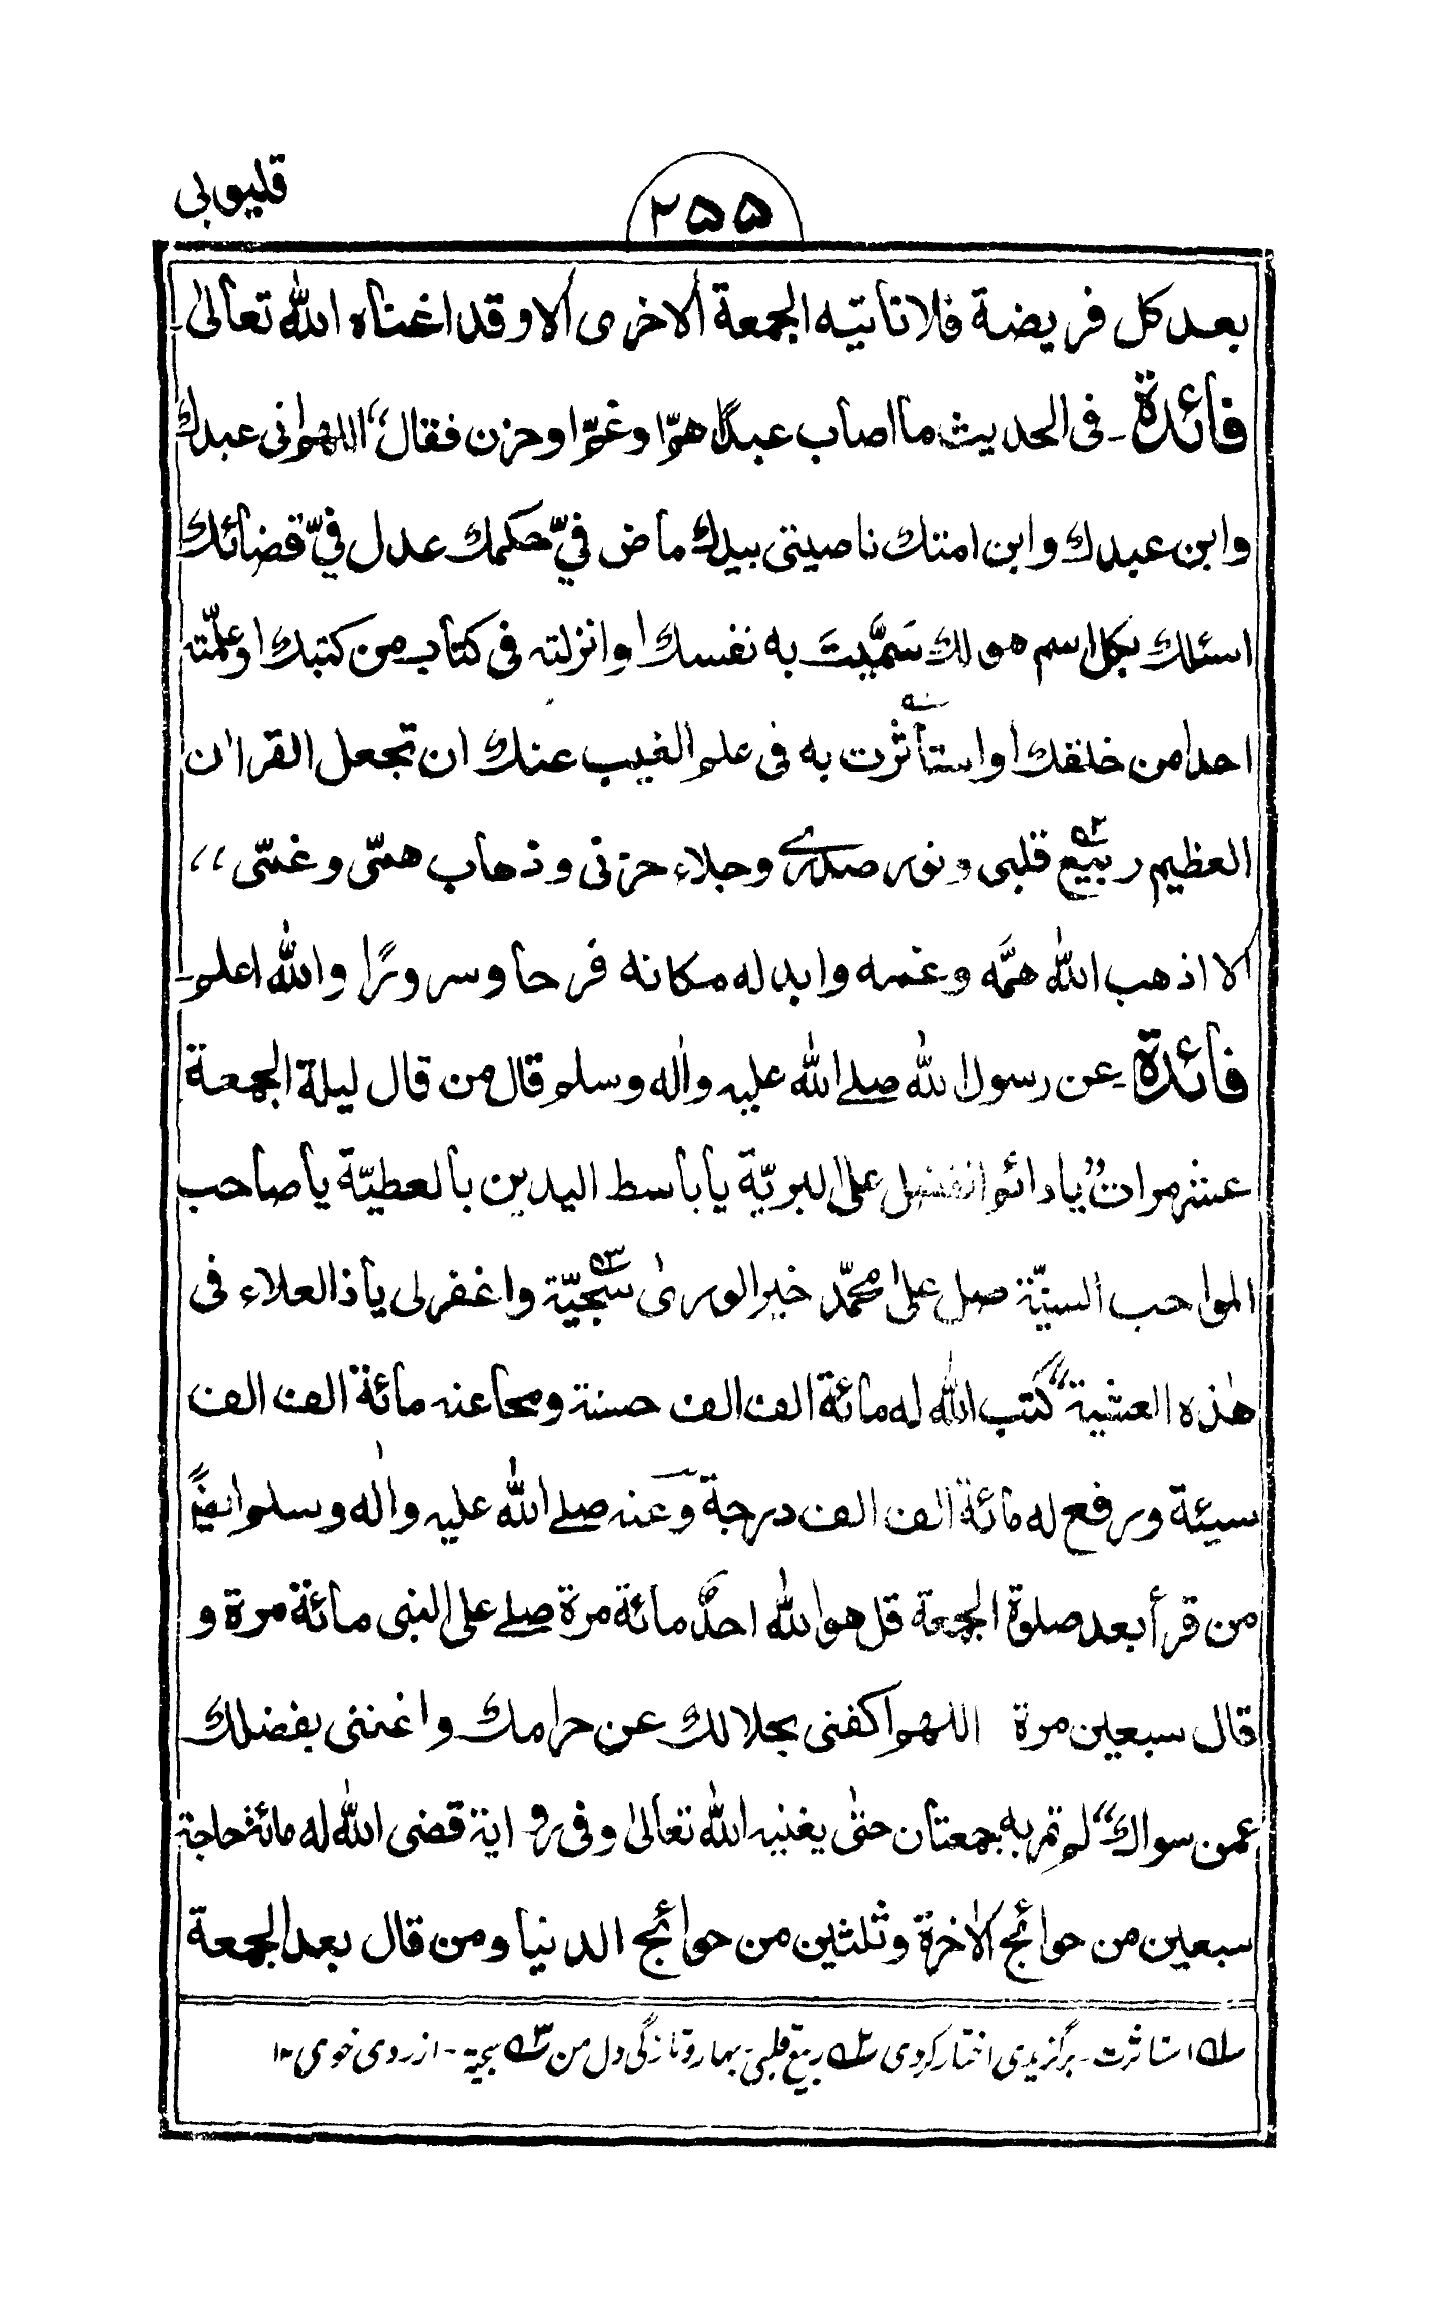 قليوبى
۲۵۵
بعد كل فريضة فلا تأتيه الجمعة ألاخرى ألا وقد اغنأه اللّٰه تعألىٰ-
فأئدة - فى الحديث مأ اصأب عبدًا همّا وغمّا او حزن فقال "اللهم انى عبدك
وابن عبدك وابن امتك ناصيتى بيدك مأض فيّ حكمك عدل فيّ قضأئك
اسئلك بكل اسم هو لك سَمَّيتَ به نفسك او انزلته فى كتأب من كتبك او علّمته
احدا من خلقك او استأثرت به فى علم الغيب عنك ان تجعل القراٰن
العظيم ربيع قلبى ونور صدرے وجلاء حزنى وذهأب همّى وغمّى ،،
الا اذهب اللّٰه همَّه وغمه وابدله مكانه فرحأ وسرورًا واللّٰه اعلم-
فأئدة - عن رسول اللّٰه صلے اللّٰه عليه واٰله وسلم قال من قال ليلة الجمعة
عشر مرات "يأ دائم الفضل على البريّة يأ بأسط اليدين بألعطيّة يأ صأحب
المواحب السنيّة صل علىٰ محمّد خير الورىٰ سجيّة واغفر لى يأ ذالعلاء فى
هٰذه العشية" كتب اللّٰه له مأئة الف الف حسنة ومحا عنه مأئة الف الف
سيئة ورفع له مأئة الف الف درجة وعنه صلے اللّٰه عليه واٰله وسلم ايضًا
من قرأ بعد صلوة الجمعة قل هو اللّٰه احدٌ مأئة مرة صلے على النبى مأئة مرة و
قال سبعين مرة اللهم اكفنى بحلالك عن حرامك واغننى بفضلك
عمن سواك" لم تمر به جمعتأن حتىٰ يغنيه اللّٰه تعألىٰ وفى رواية قضى اللّٰه له مائة حاجة
سبعين من حوأئج الاٰخرة وثلثين من حوأئج الدنيأ ومن قال بعد الجمعة
۱ استاثرت - برگزیدی اختیار کردی ۲ ربیع قلبی - بهار و تازگی دل من ۳ سجیة - از روی خوی ۱۲